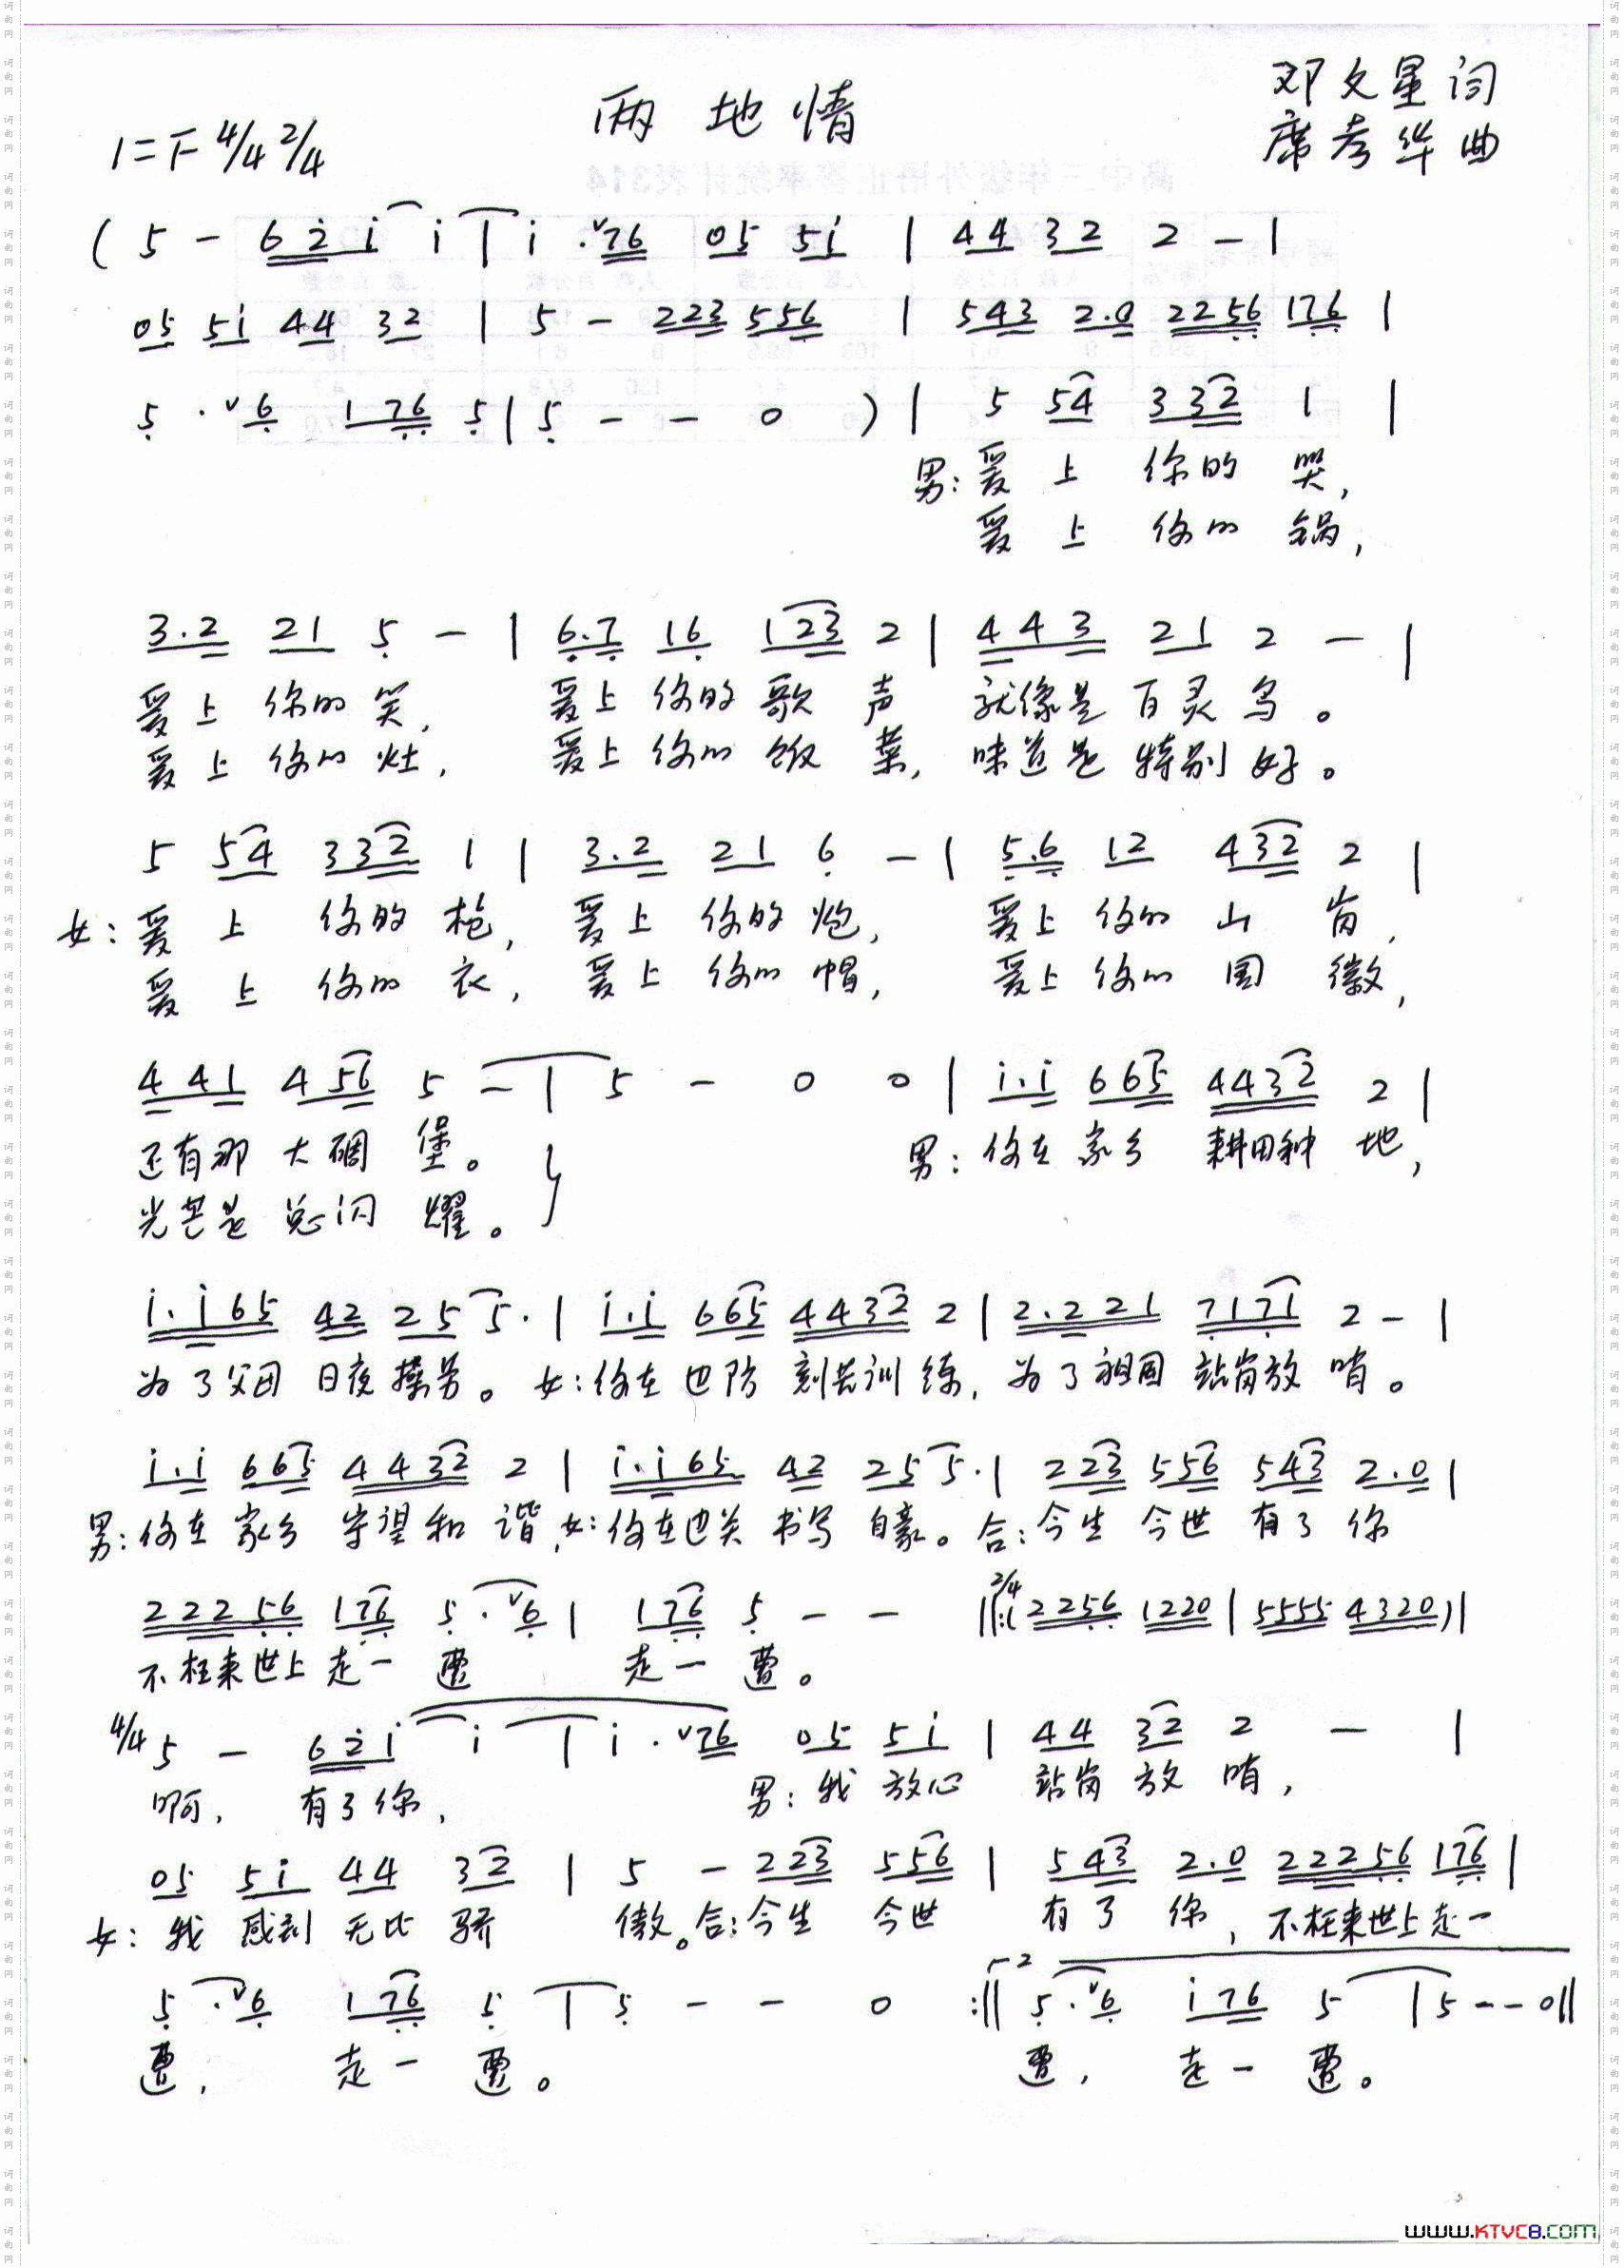 两地情
邓文星词
1=F 4/4 2/4
席孝华曲
( 5 - 6 2 i i | i · v 7 6 0 5 5 i | 4 4 3 2 2 - |
0 5 5 i 4 4 3 2 | 5 - 2 2 3 5 5 6 | 5 4 3 2 . 0 2 2 5 6 1 7 6 |
5 · v 6 1 7 6 5 | 5 - - 0 ) | 5 5 4 3 3 2 1 |
男：爱上你的哭，
爱上你的锅，
3 . 2 2 1 5 - | 6 . 7 1 6 1 2 3 2 | 4 4 3 2 1 2 - |
爱上你的笑， 爱上你的歌声 就像是百灵鸟。
爱上你的灶， 爱上你的饭菜， 味道是特别好。
5 5 4 3 3 2 1 | 3 . 2 2 1 6 - | 5 . 6 1 2 4 3 2 2 |
女：爱上你的枪， 爱上你的炮， 爱上你的山岗，
爱上你的衣， 爱上你的帽， 爱上你的国徽，
4 4 1 4 5 6 5 - | 5 - 0 0 | i . i 6 6 5 4 4 3 2 2 |
还有那大碉堡。 男：你在家乡耕田种地，
光芒是总闪耀。
i . i 6 5 4 2 2 5 5 · | i . i 6 6 5 4 4 3 2 2 | 2 . 2 2 1 7 1 7 1 2 - |
为了父母日夜操劳。 女：你在边防刻苦训练， 为了祖国站岗放哨。
i . i 6 6 5 4 4 3 2 2 | i . i 6 5 4 2 2 5 5 · | 2 2 3 5 5 6 5 4 3 2 . 0 |
男：你在家乡守望和谐， 女：你在边关书写自豪。 合：今生今世有了你
2 2 2 5 6 1 7 6 5 · v 6 | 1 7 6 5 - - ‖: 2/4 ( 2 2 5 6 1 2 2 0 | 5 5 5 5 4 3 2 0 ) |
不枉来世上走一遭 走一遭。
4/4 5 - 6 2 i i | i · v 7 6 0 5 5 i | 4 4 3 2 2 - |
啊， 有了你， 男：我放心站岗放哨，
0 5 5 i 4 4 3 2 | 5 - 2 2 3 5 5 6 | 5 4 3 2 . 0 2 2 2 5 6 1 7 6 |
女：我感到无比骄傲。 合：今生今世有了你，不枉来世上走一
5 · v 6 1 7 6 5 | 5 - - 0 :‖ 2 5 · v 6 i 7 6 5 | 5 - - 0 ‖
遭， 走一遭。 遭， 走一遭。
www.KTVC8.com